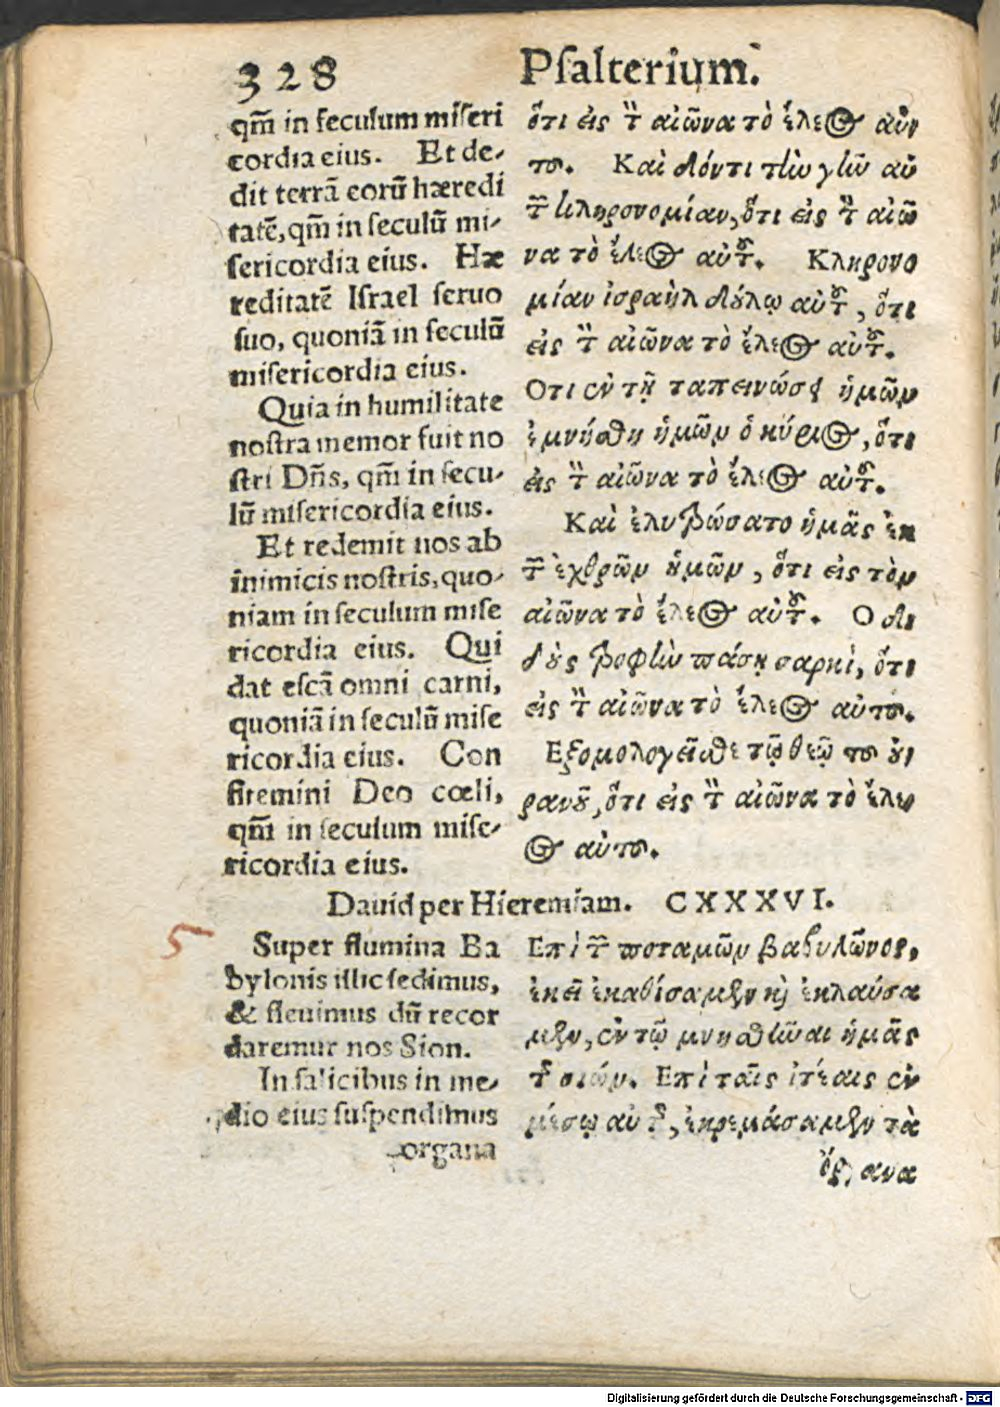 328 Pſalterium.
qm̃ in ſeculum miſeri
cordia eius. Et de-
dit terrã eorũ hæredi
tatẽ, qm̃ in ſeculũ mi-
ſericordia eius. Hæ
reditatẽ Iſrael ſeruo
ſuo, quoniã in ſeculũ
miſericordia eius.
Quia in humilitate
noſtra memor fuit no
ſtri Dñs, qm̃ in ſecu-
lũ miſericordia eius.
Et redemit nos ab
inimicis noſtris, quo-
niam in ſeculum miſe
ricordia eius. Qui
dat eſcã omni carni,
quoniã in ſeculũ miſe
ricordia eius. Con
fitemini Deo cœli,
qm̃ in ſeculum miſe-
ricordia eius.
ὅτι εἰς τ̀ αἰῶνα τὸ ἔλεος αὐ
του. Καὶ δόντι τὴν γῆν αὐ
τ̃ κληρονομίαν, ὅτι εἰς τ̀ αἰῶ
να τὸ ἔλεος αὐτȣ̃. Κληρονο
μίαν ἰσραὴλ δούλῳ αὐτȣ̃, ὅτι
εἰς τ̀ αἰῶνα τὸ ἔλεος αὐτȣ̃.
Οτι ἐν τῇ ταπεινώσει ἡμῶν
ἐμνήσθη ἡμῶν ὁ κύριος, ὅτι
εἰς τ̀ αἰῶνα τὸ ἔλεος αὐτȣ̃.
Καὶ ἐλυτρώσατο ἡμᾶς ἐκ
τ̃ ἐχθρῶν ἡμῶν, ὅτι εἰς τὸν
αἰῶνα τὸ ἔλεος αὐτȣ̃. Ο δι
δοὺς τροφὴν πάσῃ σαρκὶ, ὅτι
εἰς τ̀ αἰῶνα τὸ ἔλεος αὐτου.
Εξομολογεῖσθε τῷ θεῷ του οὐ
ρανȣ̃, ὅτι εἰς τ̀ αἰῶνα τὸ ἔλε
ος αὐτου.
Dauid per Hieremiam. CXXXVI.
5
Super flumina Ba
bylonis illic ſedimus,
& fleuimus dũ recor
daremur nos Sion.
In ſalicibus in me-
dio eius ſuſpendimus
organa
Επὶ τ̃ ποταμῶν βαβυλῶνος,
ἐκεῖ ἐκαθίσαμεν καὶ ἐκλαύσα
μεν, ἐν τῷ μνησθῆναι ἡμᾶς
τ̃ σιών. Επὶ ταῖς ἰτέαις ἐν
μέσῳ αὐτ̃, ἐκρεμάσαμεν τὰ
ὄργανα
Digitalisierung gefördert durch die Deutsche Forschungsgemeinschaft - DFG